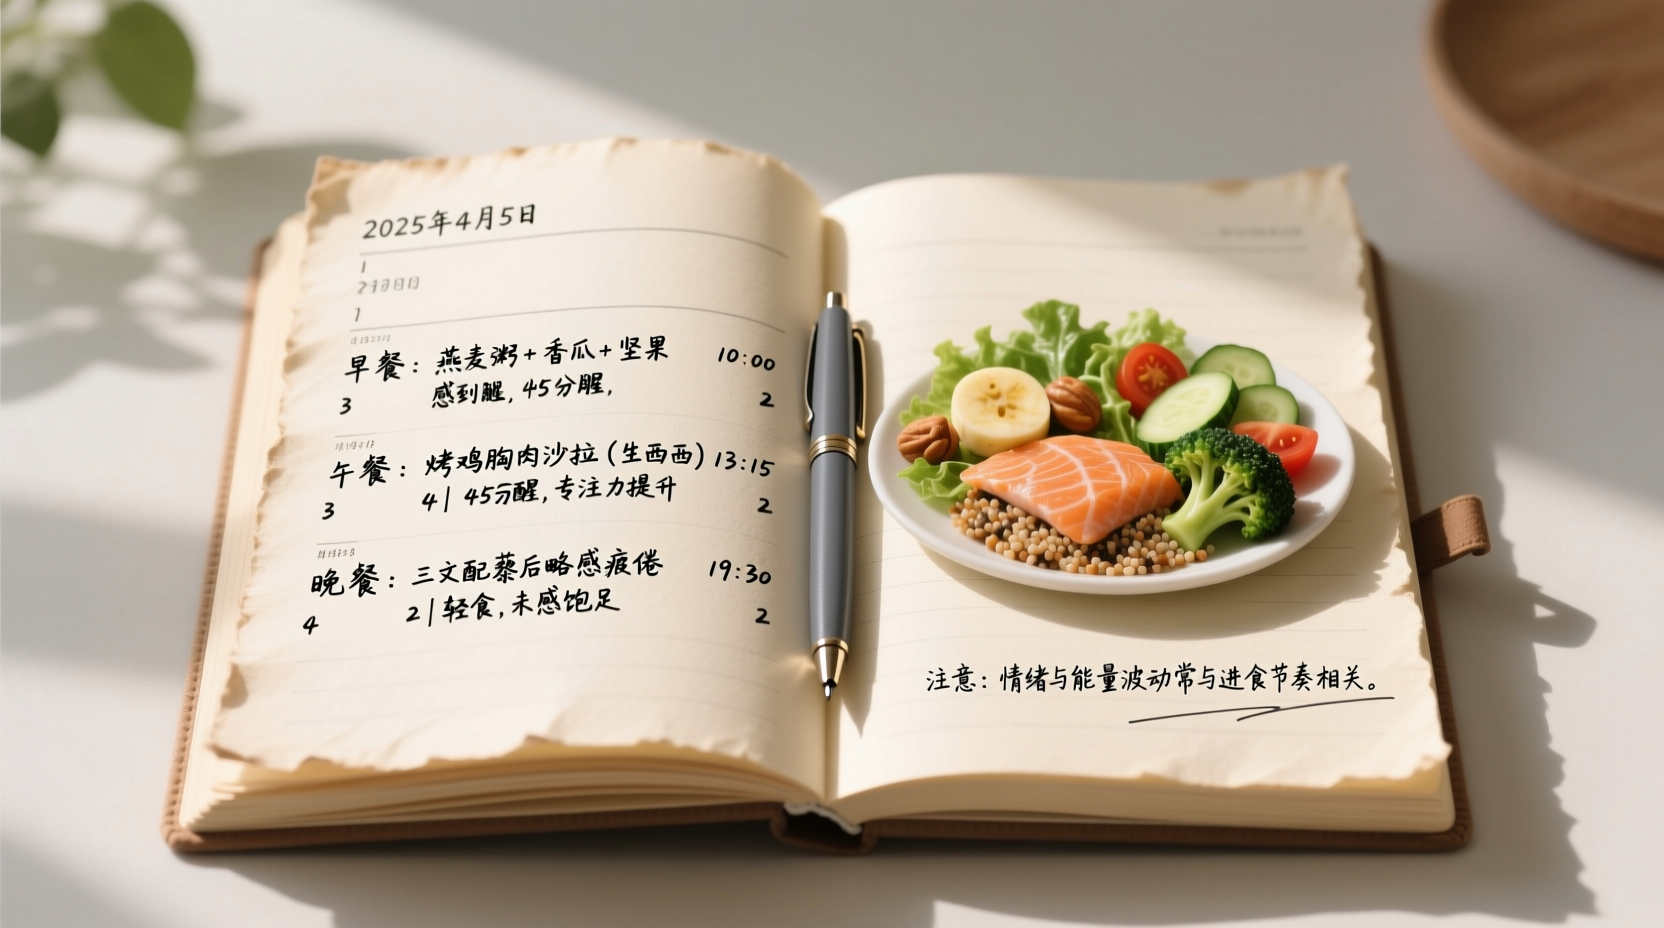 2025年4月5日
1
1
早餐：燕麦粥+香瓜+坚果 10:00
3 感到醒，45分醒， 2
午餐：烤鸡胸肉沙拉（生西西）13:15
3 4| 45分醒，专注力提升 2
晚餐：三文配藜后略感疲倦 19:30
4 2|轻食，未感饱足 2
注意：情绪与能量波动常与进食节奏相关。